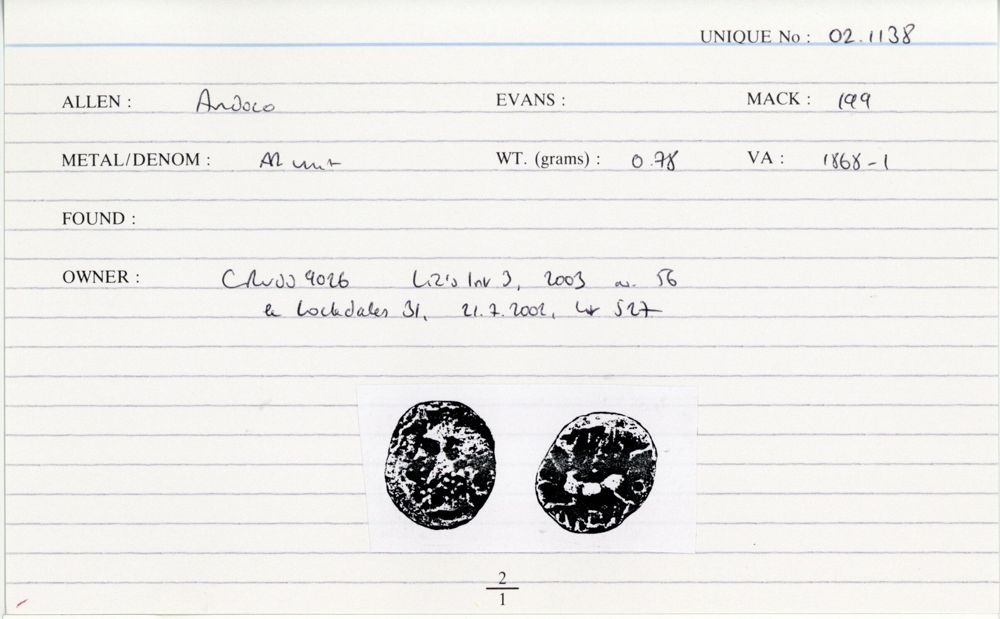 UNIQUE No : 02.1138
ALLEN : Andoco EVANS : MACK : 199
METAL/DENOM : AR unit WT. (grams) : 0.78 VA : 1868-1
FOUND :
OWNER : Liz's Inv 3, 2003 no. 56
ex Lockdales 31, 21.7.2002, lot 527
2
1